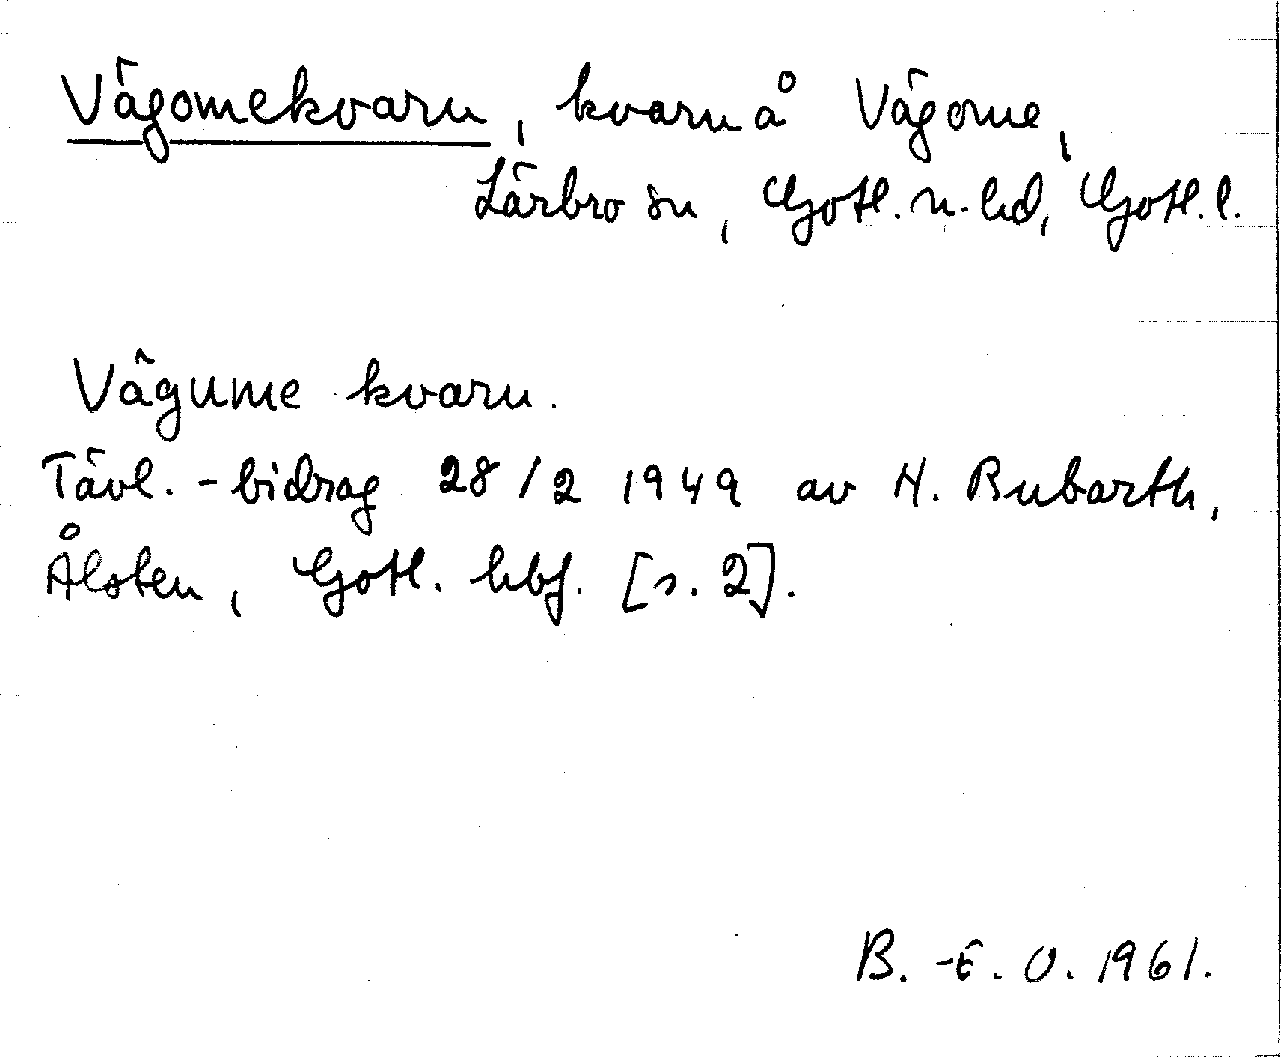 Vägomekvarn, kvarn å Vägome,
Lärbro sn, Gotl. n. hd, Gotl. l.
Vägume kvarn.
Tävl.-bidrag 28/2 1949 av H. Rubarth,
Ålsten, Gotl. hbf. [s. 2].
B.-E. O. 1961.